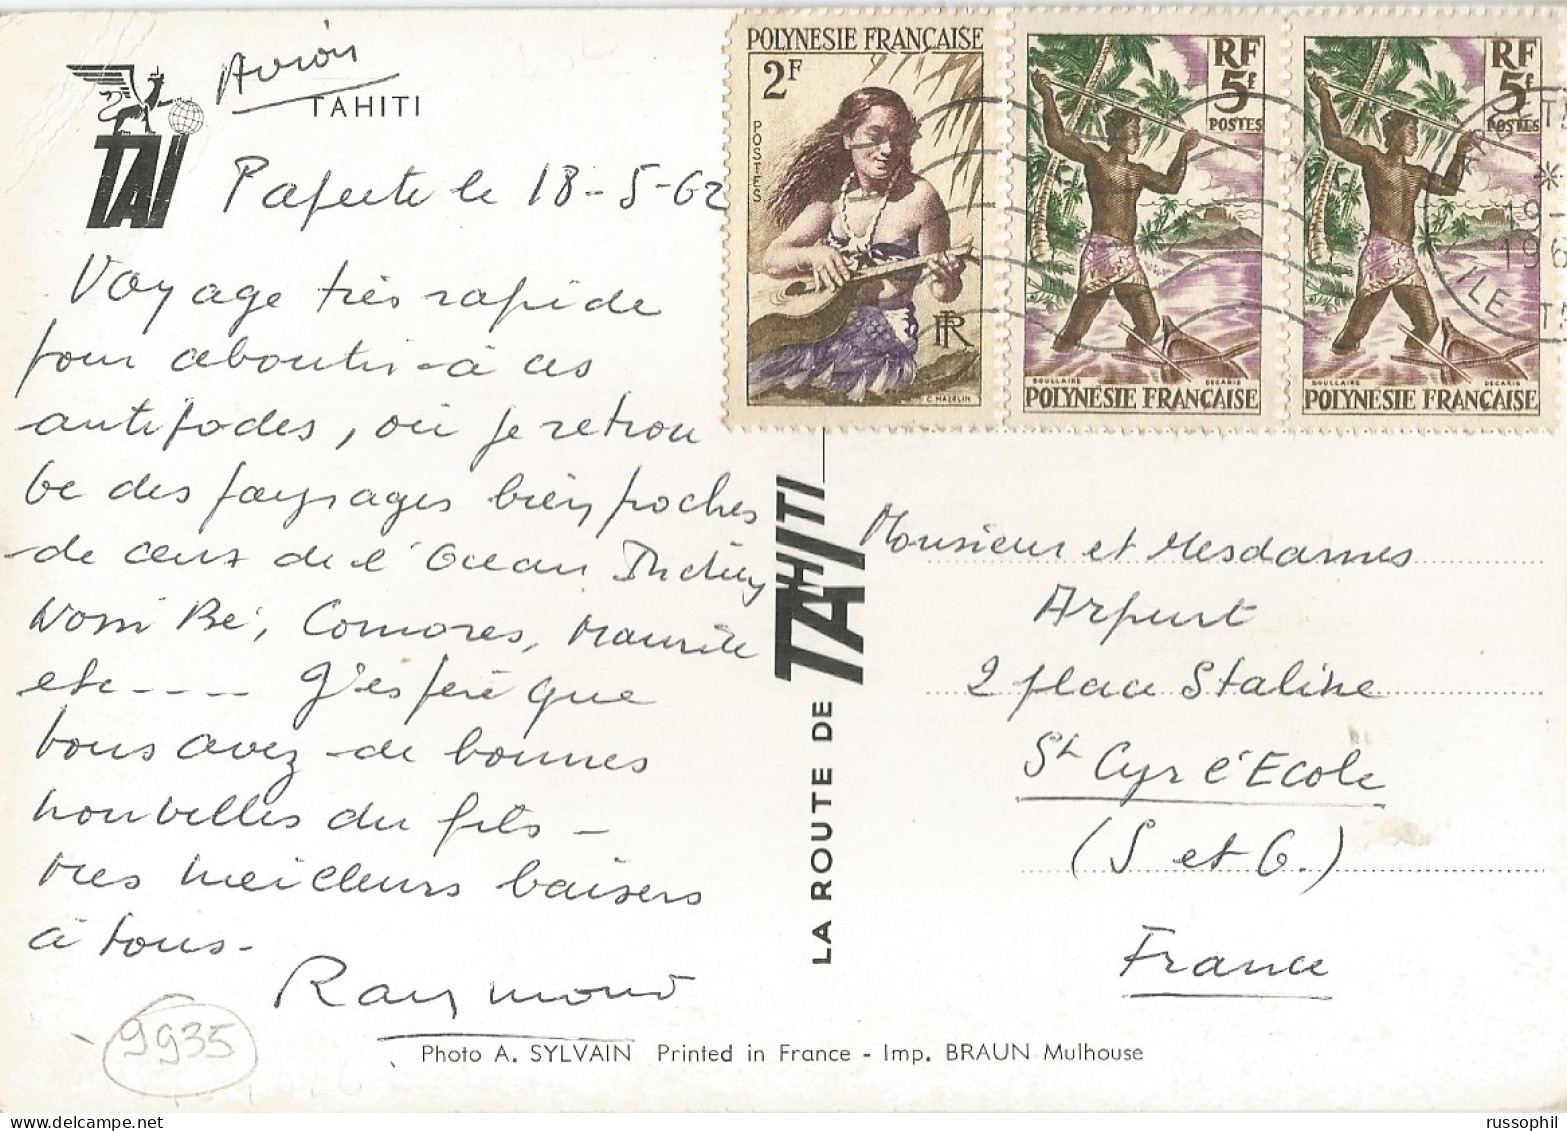 Avion
TAHITI
TAI
Papeete le 18-5-62
Voyage très rapide
pour aboutir à ces
antipodes, où je retrou
ve des paysages bien proches
de ceux de l'Océan Indien
Nossi Bé, Comores, Maurice
etc---- J'espère que
vous avez de bonnes
nouvelles du fils -
Mes meilleurs baisers
à tous-
Raymond
9935
POLYNESIE FRANÇAISE
2F
POSTES
RF
C. HAZELIN
RF
5F
POSTES
BOULLAIRE DECARIS
POLYNESIE FRANÇAISE
RF
5F
POSTES
BOULLAIRE DECARIS
POLYNESIE FRANÇAISE
19-
196
ILE TA
LA ROUTE DE TAHITI
Monsieur et Mesdames
Arpurt
2 place Staline
St Cyr l'Ecole
(S et O.)
France
Photo A. SYLVAIN Printed in France - Imp. BRAUN Mulhouse
russophil